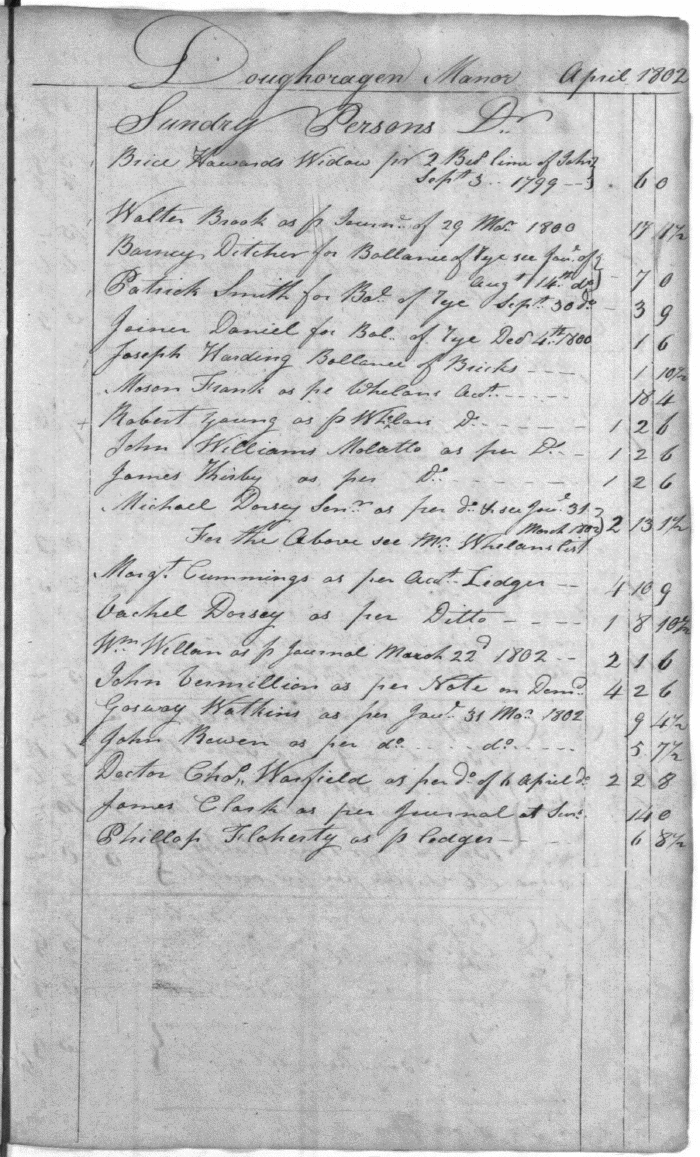 Doughoragen Manor April 1802
Sundry Persons Dr
Brice Howards Widow pr 2 Bls lime of John }
Sept 3 .. 1799 -- } . 6 0
Walter Brook as p Journl of 29 Mar 1800 17 1½
Barney Ditcher for Ballance of Rye see Jour of }
Augt 14th do } - 7 0
Patrick Smith for Bal. of Rye Sept. 30 do - 3 9
Joiner Daniel for Bal.. of Rye Decr 4th 1800 1 6
Joseph Harding Ballance of Bricks - - - - 1 10½
Mason Frank as pr Whelans Acct. - - - - 18 4
+ Robert Young as p Whelans Do - - - - - 1 2 6
John Williams Molatto as per Do - - 1 2 6
James Thirby as per Do - - - - - - 1 2 6
Michael Dorsey Senr as per do & see Jour 31 }
March 1802 } 2 13 1½
For the Above see Mr Whelans list
Margt. Cummings as per Acct Ledger -- 4 10 9
Vachel Dorsey as per Ditto - - - - 1 8 10½
Wm Willan as p Journal March 22d 1802 -- 2 1 6
John Vermillion as per Note on Demd 4 2 6
Gosway Watkins as per Jour 31 Mar 1802 9 4½
John Bewen as per do - - - - do - - - - 5 7½
Doctor Chos. Warfield as per do of 6 April do 2 2 8
James Clark as per Journal at 14 0
Phillop Floherty as p Ledger -- - - - 6 8½